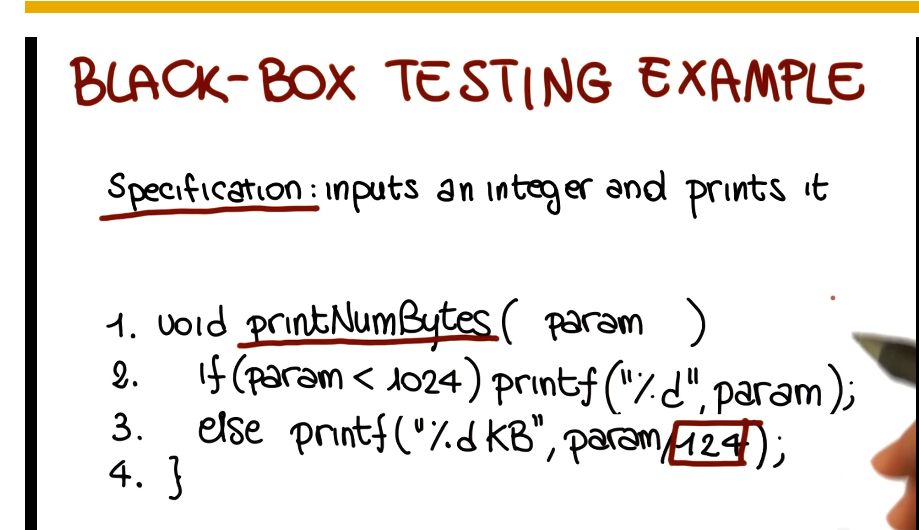 BLACK-BOX TESTING EXAMPLE
Specification: inputs an integer and prints it
1. void printNumBytes( param )
2. if(param < 1024) printf("%d", param);
3. else printf("%d KB", param/124);
4. }